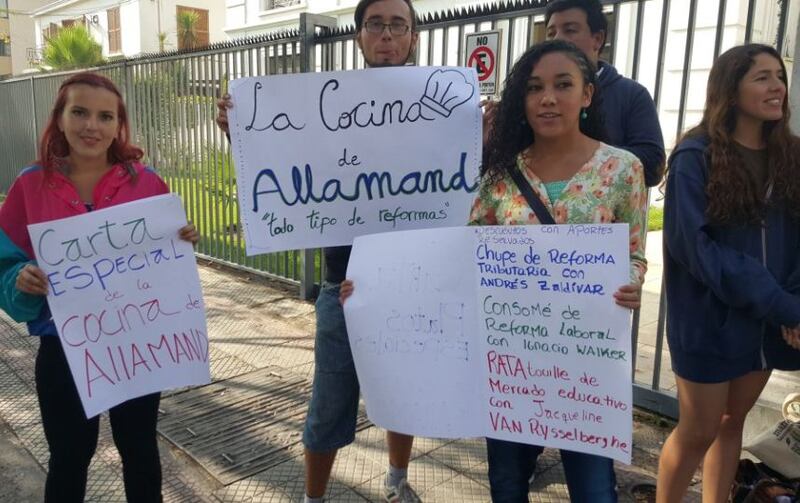 La Cocina
de
Allamand
"todo tipo de reformas"
Carta
ESPECIAL
de la
cocina de
ALLAMAND
DESCUENTOS CON APORTES
RESERVADOS
Chupe de REFORMA
TRIBUTARIA con
ANDRÉS ZALDÍVAR
Consomé de
Reforma Laboral
con Ignacio WALKER
RATAtouille de
Mercado educativo
con Jacqueline
VAN RYSSELBERGHE
Platos
Especiales
NO